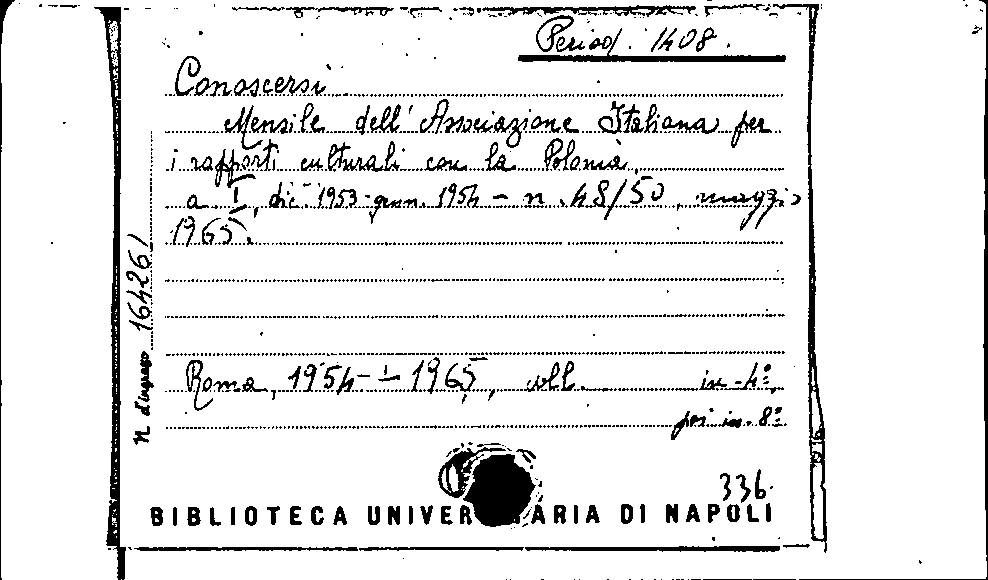 Period. 1408.
Conoscersi.
Mensile dell'Associazione Italiana per
i rapporti culturali con la Polonia.
a. I, dic. 1953-genn. 1954 - n. 48/50, maggio
1965.
Roma, 1954-1965, voll. in-4º,
poi in-8º
N. d'ingresso 164261
336.
BIBLIOTECA UNIVER ARIA DI NAPOLI